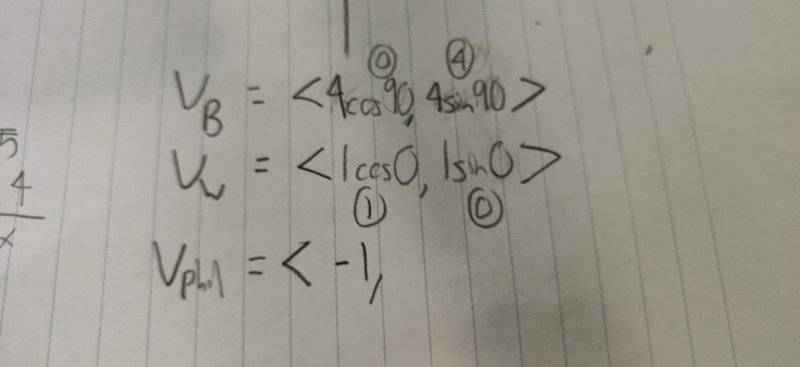 ⓪ ④
V_B = <4cos90, 4sin90>
V_w = <1cos0, 1sin0>
① ⓪
V_phil = < -1,
5
4
x